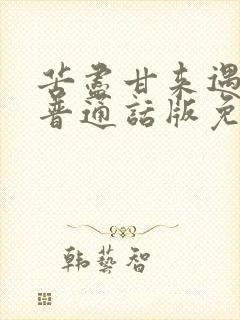 苦盡甘來遇
普通話版免
韩藝智